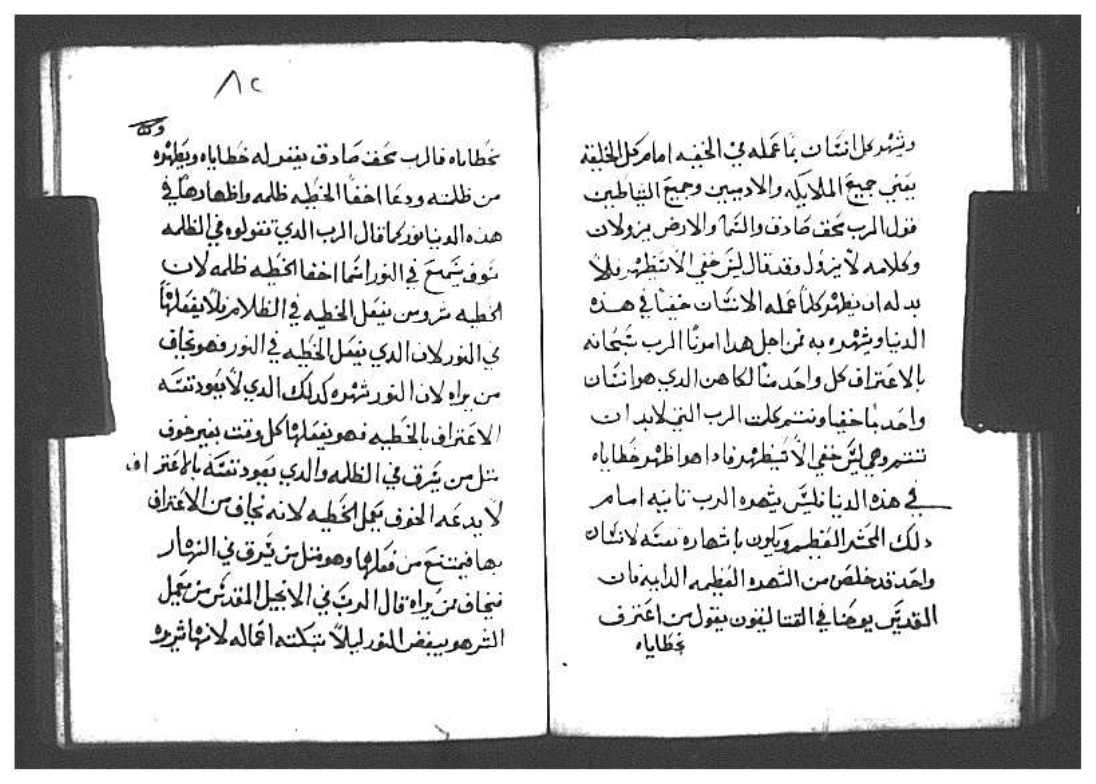 ويشهد كل انسان بما عمله في الخفيه امام كل الخليقه
يعني جميع الملايكه والادميين وجميع الشياطين
قول الرب بحق صادق والسما والارض يزولان
وكلامه لا يزول وقد قال ليس خفي الا سيظهر فلا
بد له ان يظهر كلما عمله الانسان خفيا في هذه
الدنيا ويشهده به فمن اجل هدا امرنا الرب سبحانه
بالاعتراف كل واحد منا لكاهن الدي هو انسان
واحد باخفيا ونتم كلمت الرب التي لا بد ان
تتم وهي ليس خفي الا سيظهر فادا هو اظهر خطاياه
في هذه الدنيا فليس يشهده الرب تانيه امام
دلك المحشر العظيم ويكون باشهاره نفسه لانسان
واحد قد خلص من الشهده العظيمه الدايمه فان
القديس يوحنا في القتاليقون يقول من اعترف
بخطاياه
٨٢
بخطاياه فالرب بحق صادق يغفر له خطاياه ويطهره
من ظلمته ودعا اخفا الخطيه ظلمه واظهادها في
هذه الدنيا نور كما قال الرب الدي تقولوه في الظلمه
سوف يسمع في النور انما اخفا الخطيه ظلمه لان
الخطيه من يفعل الخطيه في الظلام فلا يفعلها
في النور لان الدي يفعل الخطيه في النور فهو يخاف
من يراه لان النور شهره كدلك الدي لا يعود نفسه
الاعتراف بالخطيه فهو يفعلها كل وقت بغير خوف
متل من يسرق في الظلمه والدي يعود نفسه بالاعتراف
لا يدعه الخوف يعمل الخطيه لانه يخاف من الاعتراف
بها فيمتنع من فعلها وهو متل من يسرق في النهار
فيخاف من يراه قال الرب في الانجيل المقدس من يعمل
الشر هو يبغض النور ليلا تبكته اعماله لانها شريره